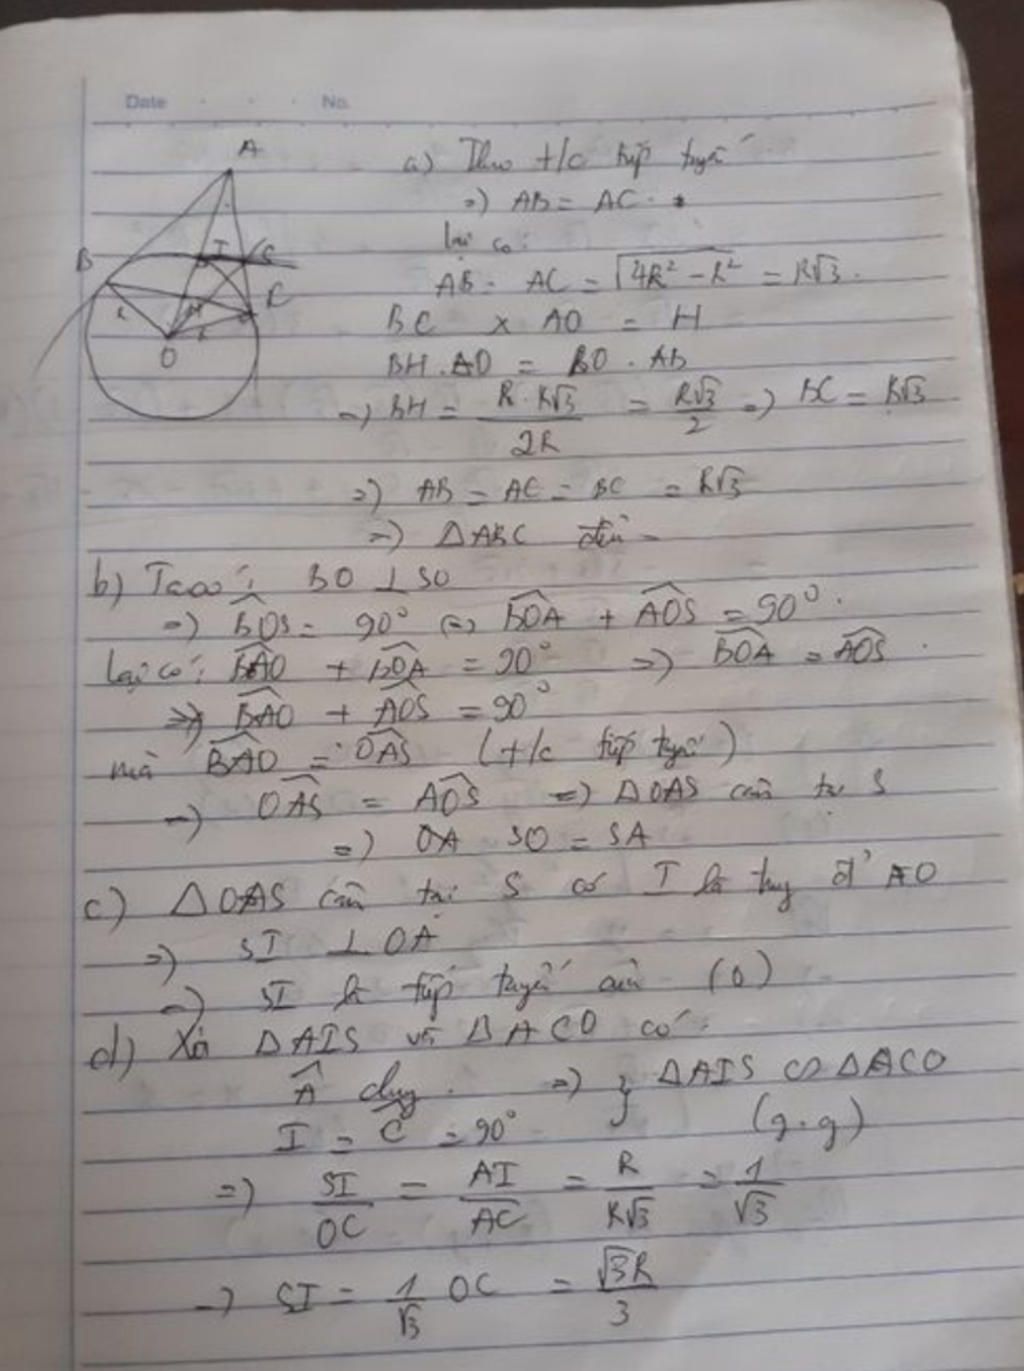 Date No.
A
B
I
C
H
O
a) Theo t/c tiếp tuyến
=) AB = AC.
lại có:
AB = AC = √4R² - R² = R√3.
BC x AO = H
BH . AO = BO . AB
=) BH = R.R√3 / 2R = R√3 / 2 =) BC = R√3
=) AB = AC = BC = R√3
=) ΔABC đều
b) Ta có: BO ⊥ SO
=) BOS = 90° (=) BOA + AOS = 90°.
lại có: BAO + BOA = 90° =) BOA = AOS.
=) BAO + AOS = 90°
mà BAO = OAS (t/c tiếp tuyến)
=) OAS = AOS =) ΔOAS cân tại S
=) OA SO = SA
c) ΔOAS cân tại S có I là trung đ' AO
=) SI ⊥ OA
=) SI là tiếp tuyến của (O)
d) Xét ΔAIS và ΔACO có:
A chung. =) } ΔAIS ∽ ΔACO
I = C = 90° (g.g)
=) SI / OC = AI / AC = R / R√3 = 1 / √3
=) SI = 1 / √3 OC = √3R / 3